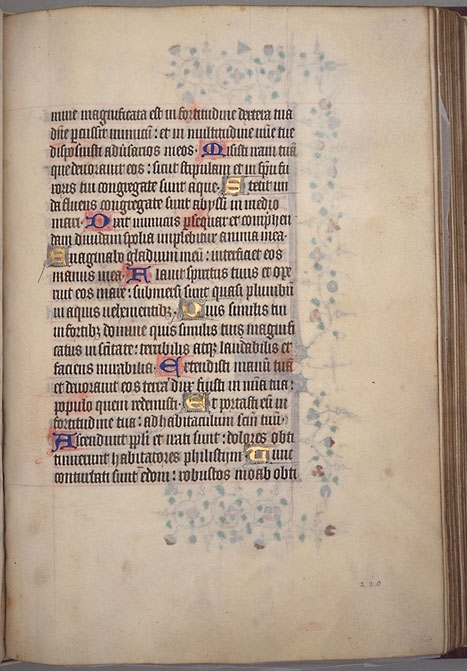 mine magnificata est in fortitudine dextera tua
dn̄e p̱cussit inimicū: et in multitudine gl̄ie tue
deposuisti adūsarios meos. Misisti iram tuā
que deuorauit eos: sicut stipulam et in sp̄u fu
roris tui congregate sunt aque. Stetit un
da fluens congregate sunt abyssi in medio
mari. Dixit inimicus persequar et compħen
dam diuidam spolia implebitur anima mea
Euaginabo gladium meū: interficiet eos
manus mea. Flauit spiritus tuus et ope
ruit eos mare: submersi sunt quasi plumbū
in aquis uehementibꝫ. Quis similis tui
in fortibꝫ domine quis similis tui: magnifi
catus in sc̄itate: terribilis atqꝫ laudabilis et
faciens mirabilia. Extendisti manū tuā
et deuorauit eos terra: dux fuisti in mīa tua:
populo quem redemisti. Et portasti eū in
fortitudine tua: ad habitaculum sc̄m tuū.
Ascenderunt ppl̄i et irati sunt: dolores obti
nuerunt habitatores philistijm. Tunc
conturbati sunt edom: robustos moab obti
220